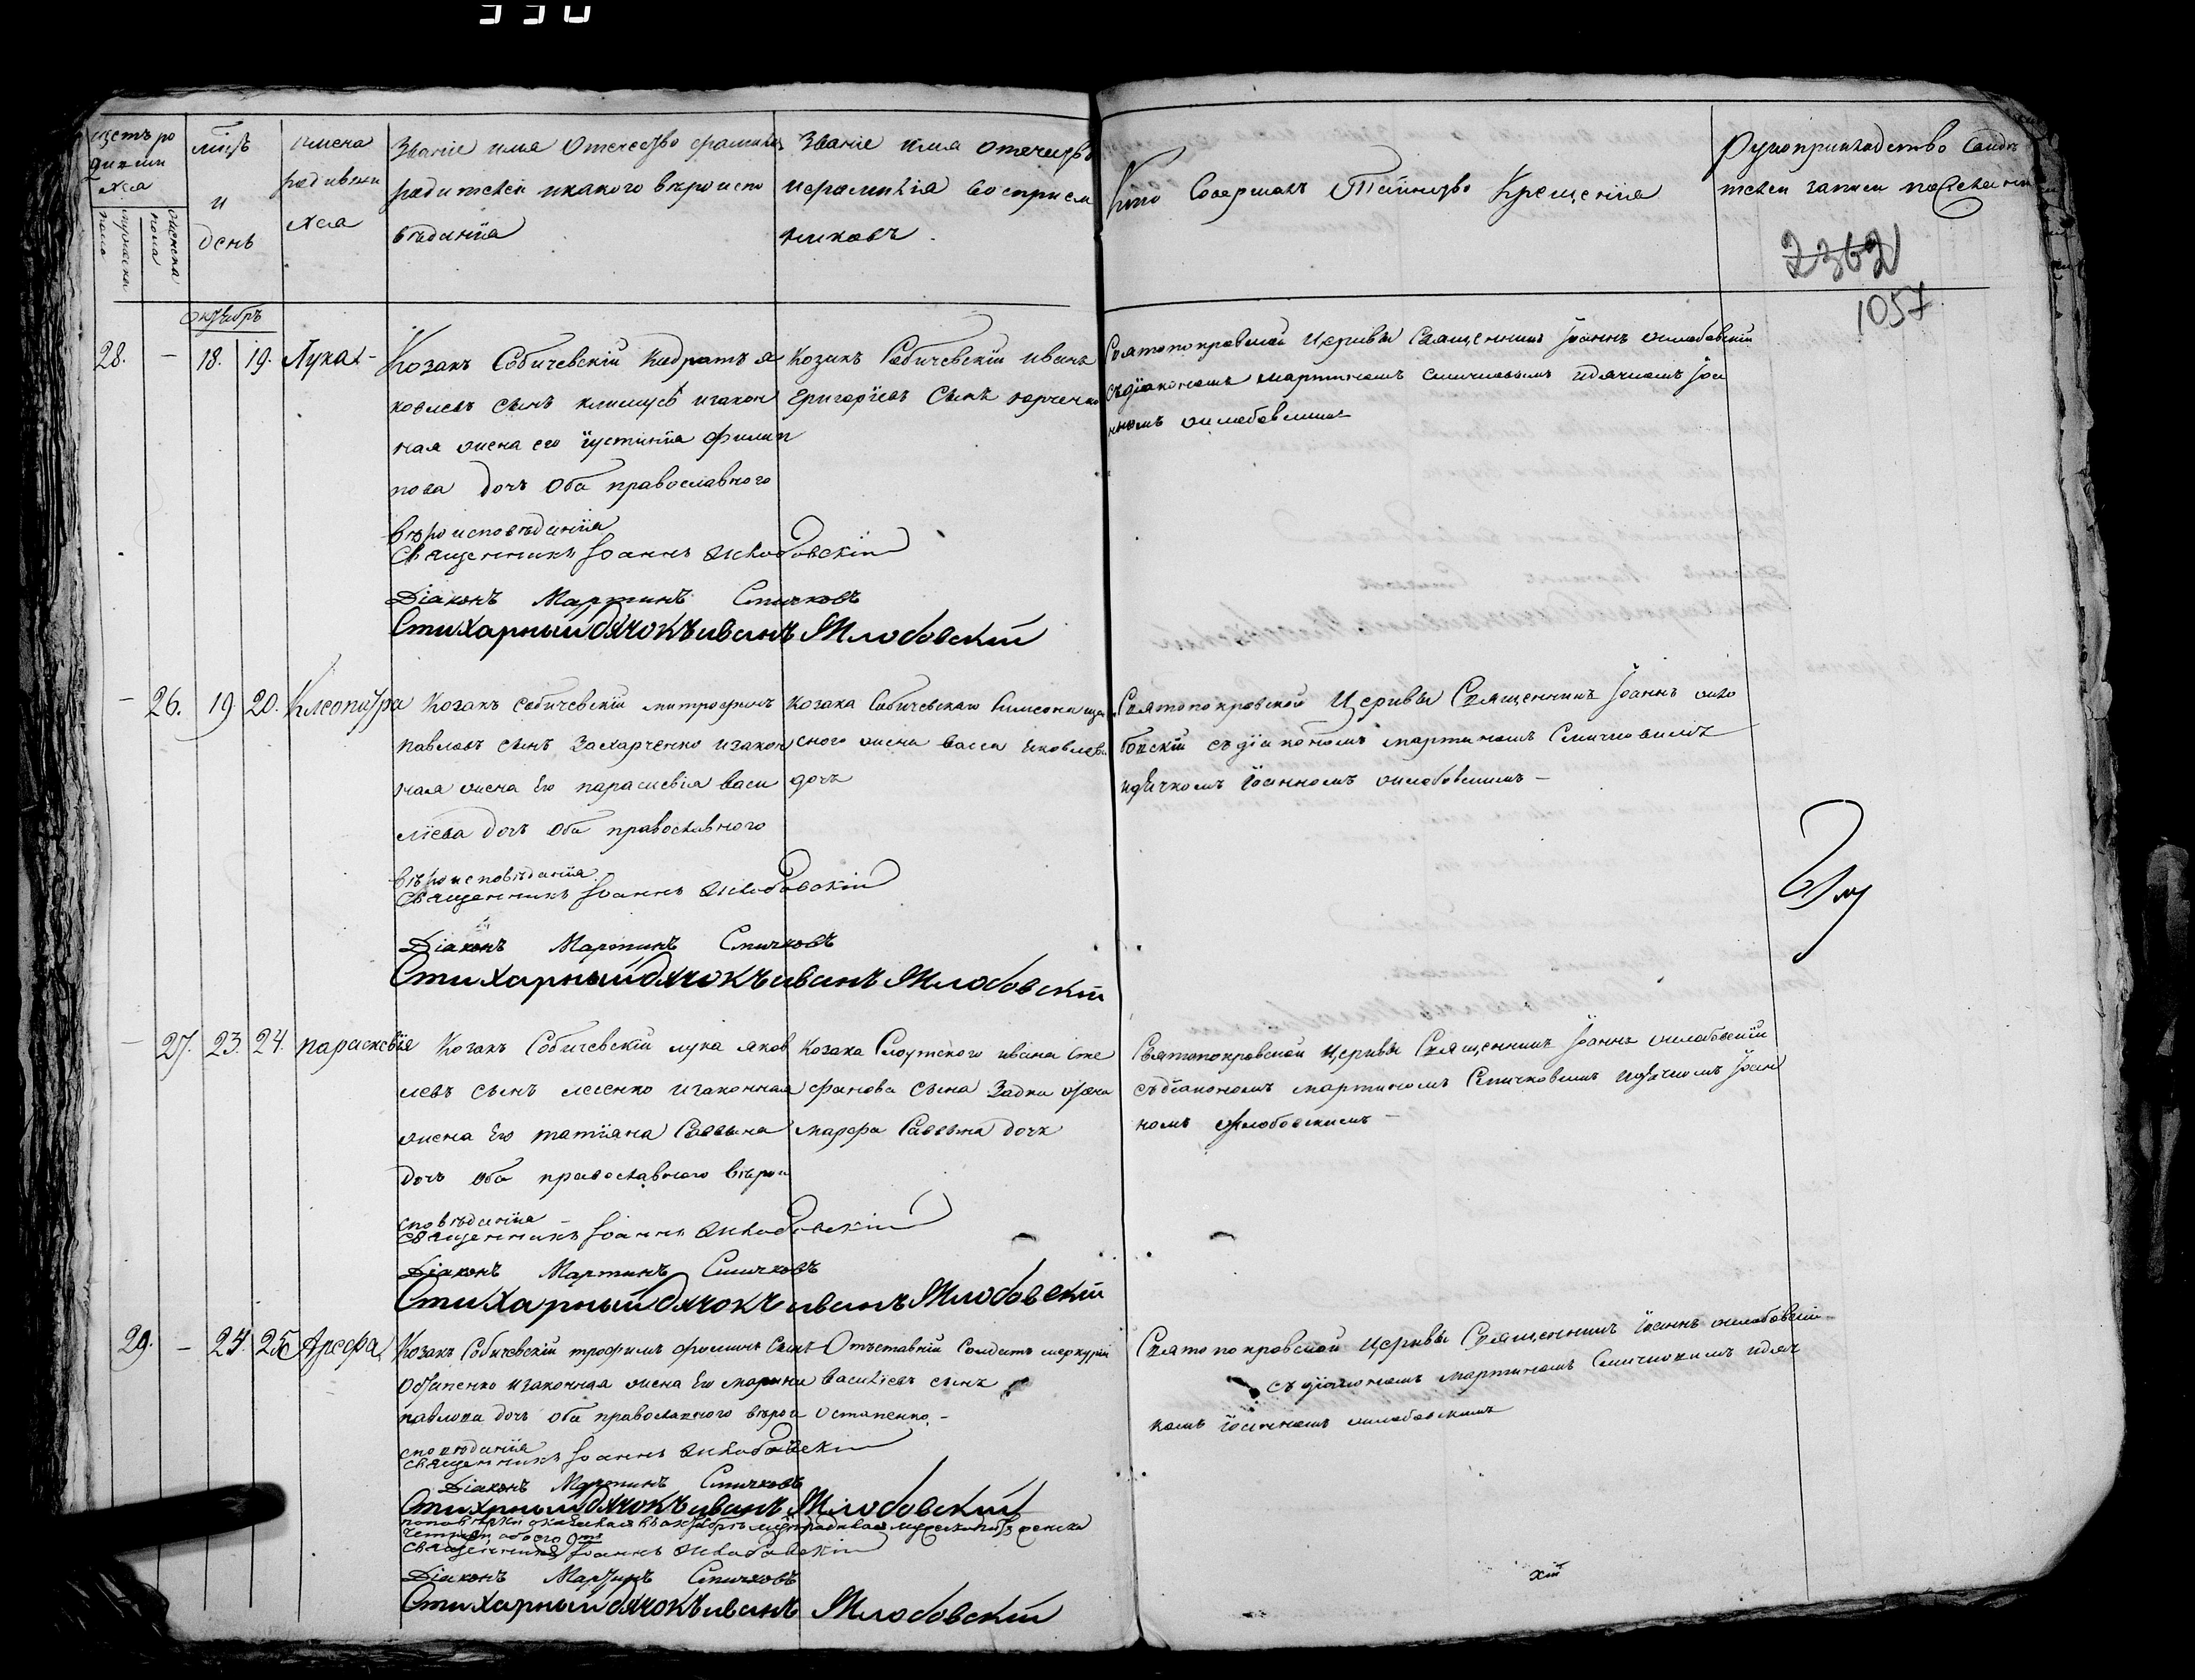 щетъ ро
дивши
хся
мужеска
пола
женска
пола
мѣсяцъ
и
день
имена
родивши
хся
Званіе имя Отечество фамилія
родителей икакого вѣроиспо
вѣданія
Званіе имя отечество
ифамилія Восприем
никовъ.
Кто Совершалъ Таинство Крещенія
Рукоприкладство Свидѣ
телей записи по желанію
2362
1057
Октябрь
28. – 18. 19. Лука –
Козакъ Собичевскій Кодратъ я
ковлевъ сынъ климусъ изакон
ная жена его іустинія филип
пова дочь Оба православного
вѣроисповѣданія
Козакъ Собичевскій иванъ
Григоріевъ Сынъ юрченко
Святопокровской Церкви Священникъ Іоаннъ жлобовскій
съдіакономъ мартиномъ спичковымъ идячкомъ Іоа
нномъ жлобовскимъ
Священникъ Іоаннъ Жлобовскій
Діаконъ Мартинъ Спичковъ
Стихарный дячокъ иванъ Жлобовскій
– 26. 19. 20. Клеопатра
Козакъ собичевскій митрофанъ
павловъ сынъ Захарченко изакон
ная жена Его параскевія васи
ліева дочь Оба православного
вѣроисповѣданія
Козака Собичевскаго Симеона
жена васса Яковлева
дочь
Святопокровской Церкви Священникъ Іоаннъ жло
бовскій съдіакономъ мартиномъ Спичковимъ
идячкомъ Іоанномъ жлобовскимъ –
Священникъ Іоаннъ Жлобовскій
Діаконъ Мартинъ Спичковъ
Стихарный дячокъ иванъ Жлобовскій
– 27. 23. 24. параскевія
Козакъ Собичевскій лука яков
левъ сынъ лесенко изаконная
жена Его татіана Саввина
дочь оба православного вѣрои
сповѣданія
Козака Слоутского ивана Сте
фанова сына Задки жена
марфа Саввина дочь
Святопокровской церкви Священникъ Іоаннъ жлобовскій
съдіакономъ мартиномъ Спичковимъ идячкомъ Іоан
номъ жлобовскимъ –
Священникъ Іоаннъ Жлобовскій
Діаконъ Мартинъ Спичковъ
Стихарный дячокъ иванъ Жлобовскій
29. – 24. 25. Арефа
Козакъ Собичевскій трофимъ фоминъ Сынъ
изаконная жена Его марина
павлова дочь оба православного вѣрои
сповѣданія
Отъставній Солдатъ меркурій
василіевъ сынъ
остапенко –
Святопокровской Церкви Священникъ Іоаннъ жлобовскій
съ діакономъ мартиномъ Спичковимъ идяч
комъ Іоанномъ жлобовскимъ
Священникъ Іоаннъ Жлобовскій
Діаконъ Мартинъ Спичковъ
Стихарный дячокъ иванъ Жлобовскій
Священникъ Іоаннъ Жлобовскій
Діаконъ Мартинъ Спичковъ
Стихарный дячокъ иванъ Жлобовскій